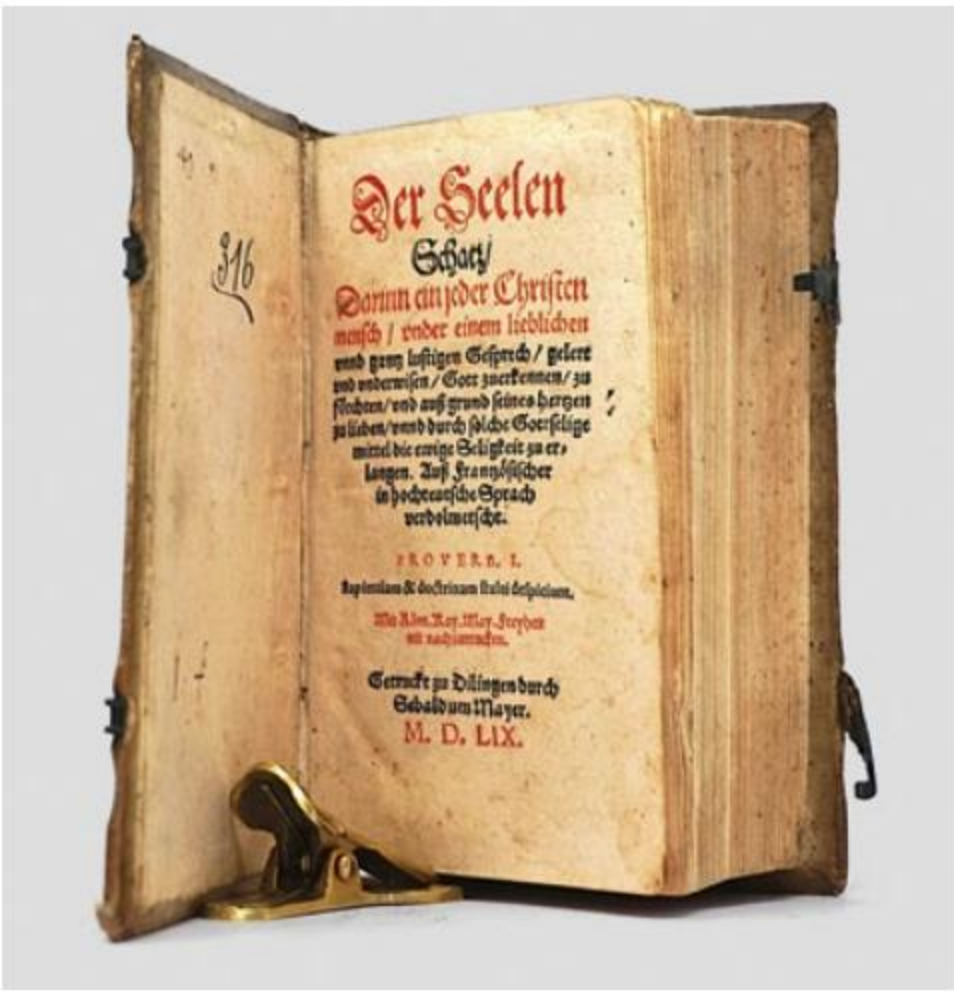 316
Der Seelen
Schatz/
Darinn ein jeder Christen
mensch / vnder einem lieblichen
vnnd gantz lustigen Gesprech / gelert
vnd vnderwisen / Gott zuerkennen / zu
förchten / vnd auß grund seines hertzen
zu lieben / vnnd durch solche Gottselige
mittel die ewige Seligkeit zu er-
langen. Auß Frantzösischer
in hochteutsche Sprach
verdolmetscht.
PROVERB. I.
Sapientiam & doctrinam stulti despiciunt.
Mit Röm. Kay. May. Freyheit
nit nachzutrucken.
Getruckt zu Dilingen durch
Sebaldum Mayer.
M. D. LIX.